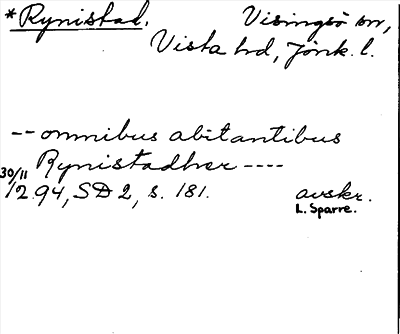 *Rynistad. Visingsö sn,
Vista hd, Jönk. l.
-- omnibus abitantibus
Rynistadher ----
30/11
1294, SD 2, s. 181. avskr.
L. Sparre.